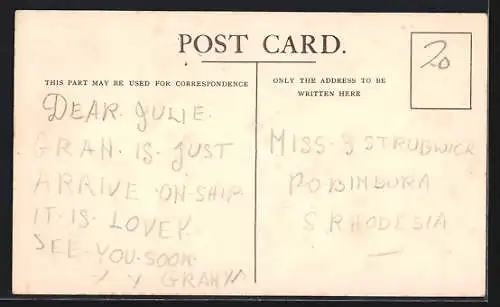 POST CARD.
THIS PART MAY BE USED FOR CORRESPONDENCE
ONLY THE ADDRESS TO BE
WRITTEN HERE
20
DEAR. JULIE.
GRAN. IS. JUST
ARRIVE. ON. SHIP
IT. IS. LOVEY.
SEE. YOU. SOON.
GRAN
MISS. J STRUBWICK
S RHODESIA